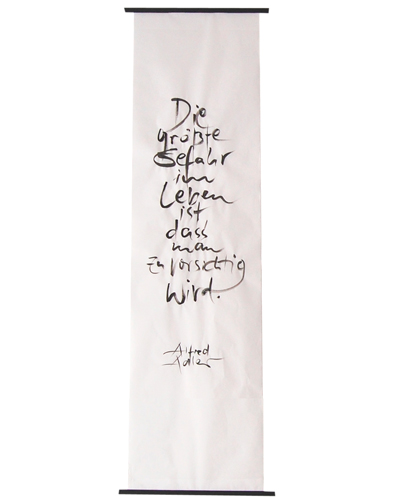 Die
größte
Gefahr
im
Leben
ist
dass
man
zu vorsichtig
wird.
Alfred
Adler